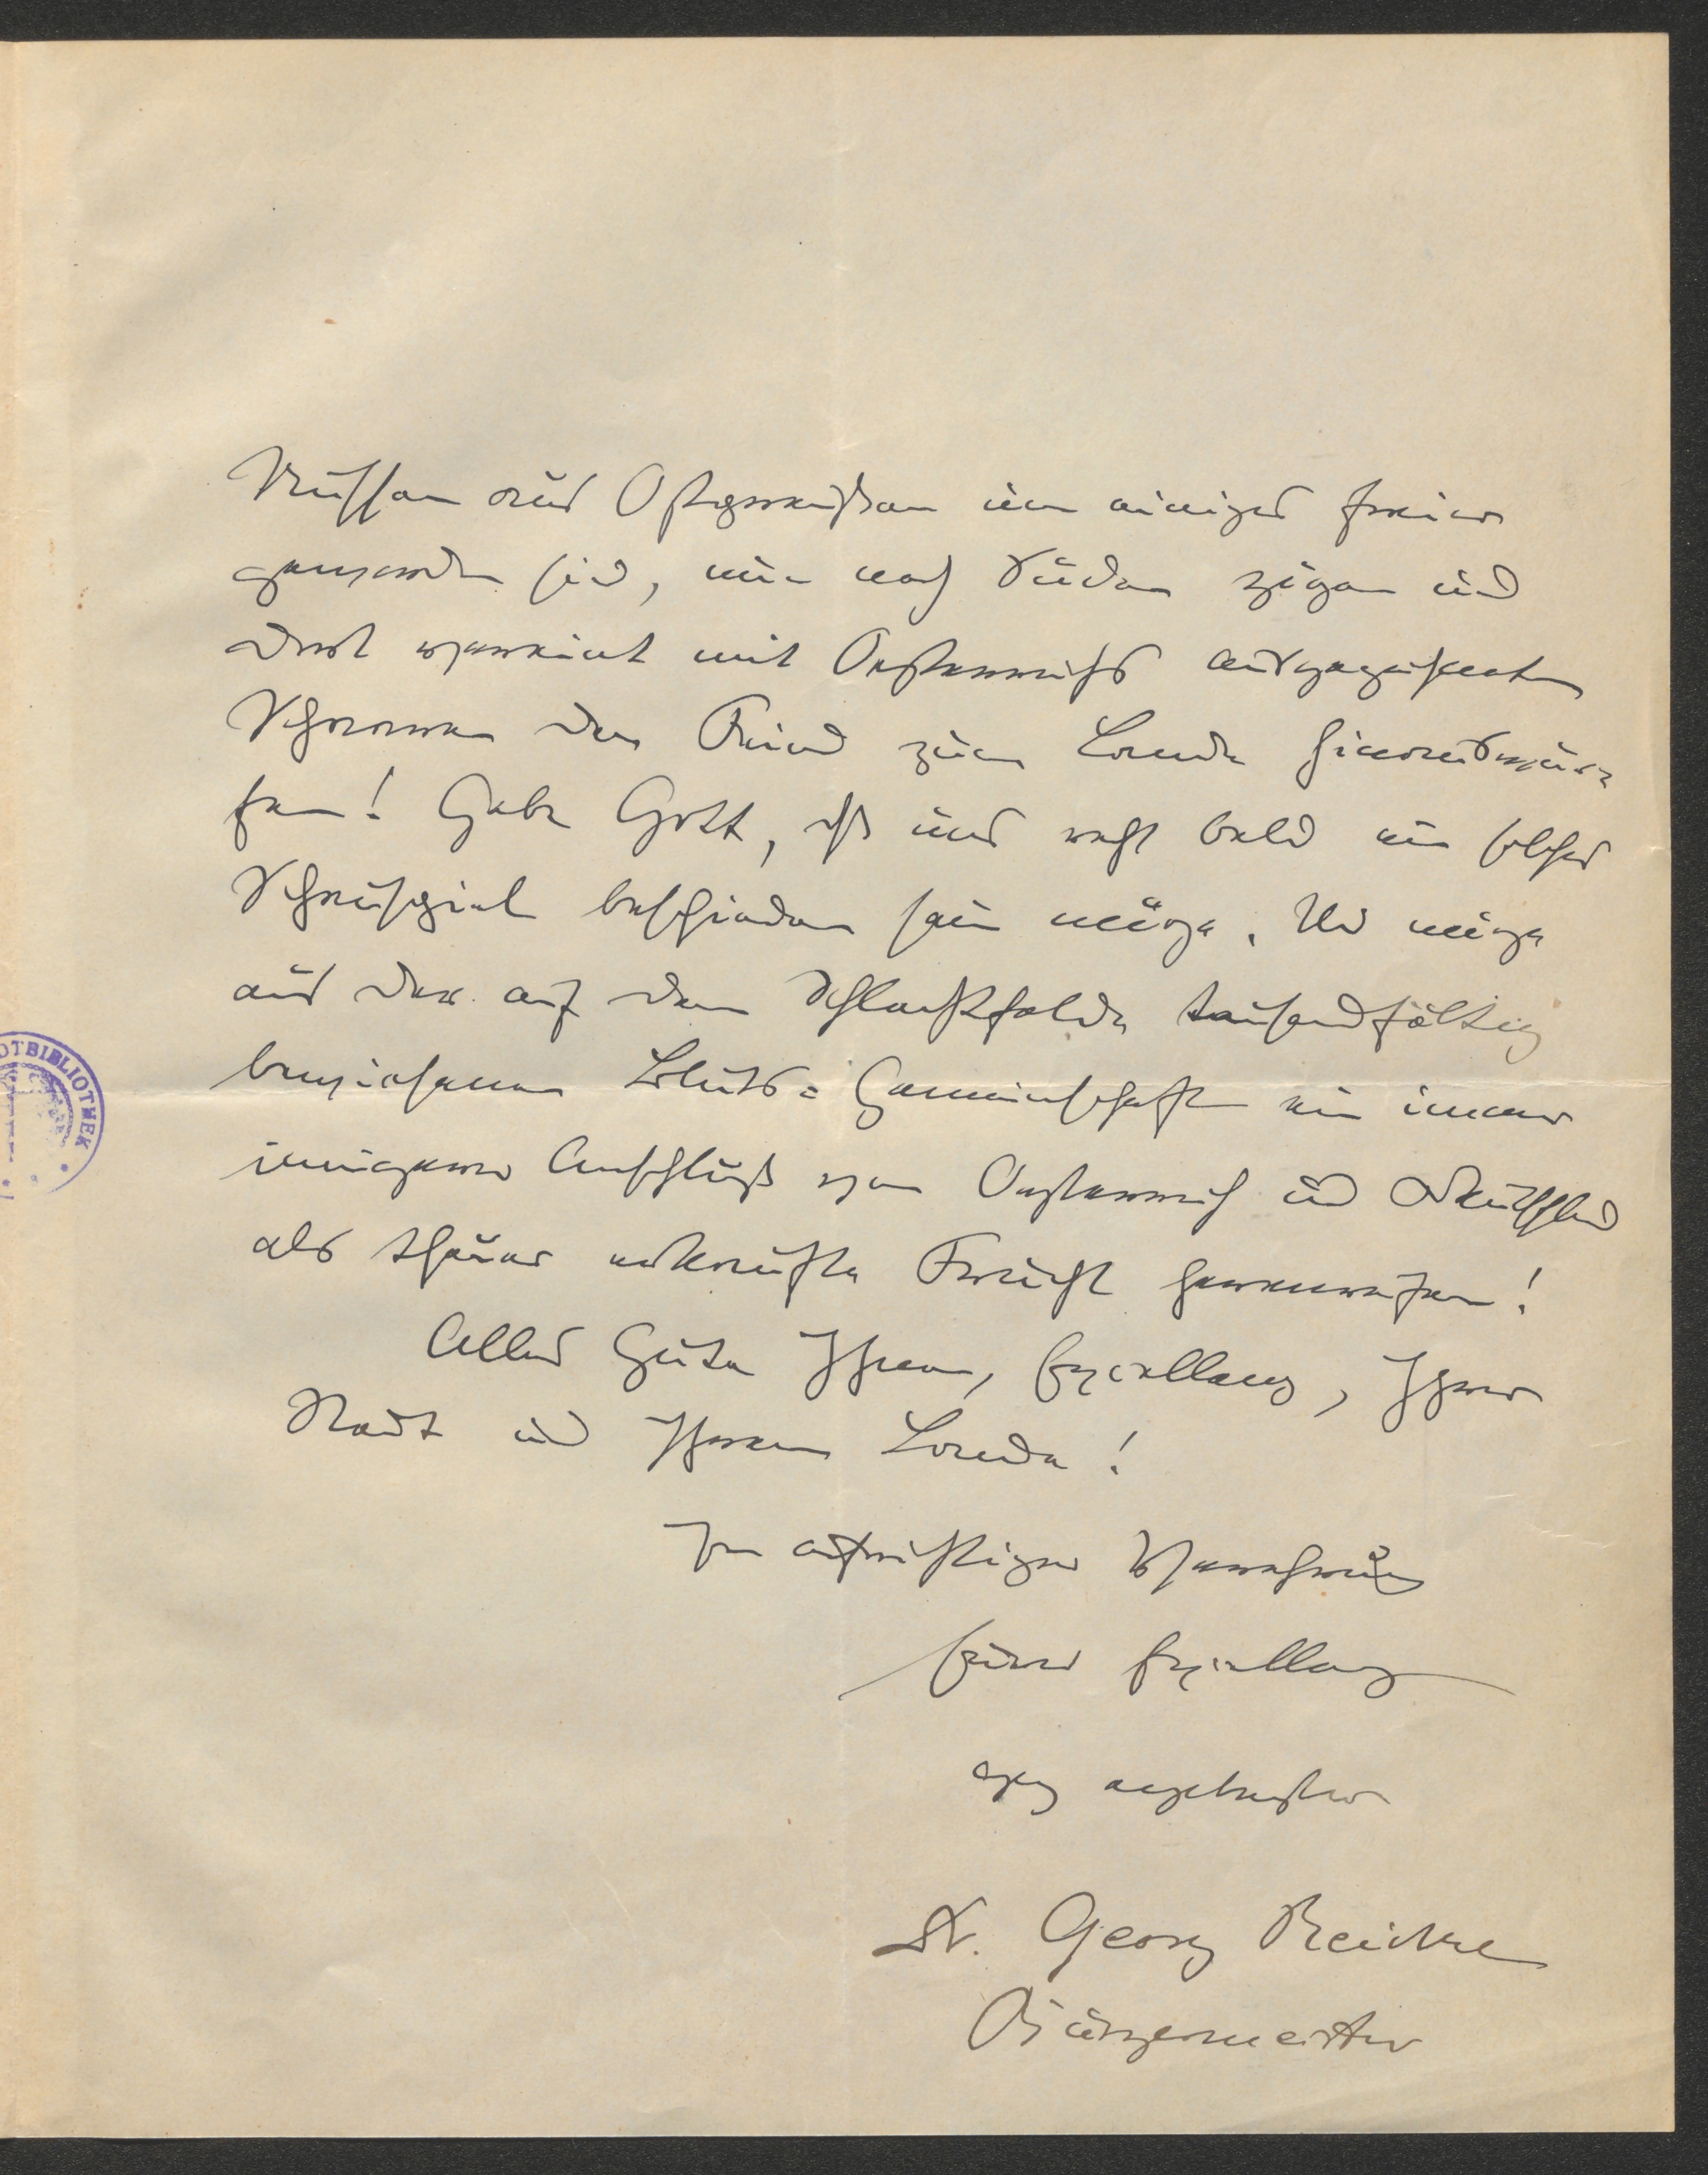 Russen aus Ostpreußen um einiges freier
geworden sind, nun nach Süden zögen und
dort vereint mit Oesterreichs ausgezeichneten
Scharen den Feind zum Lande hinauswür-
fen! Gebe Gott, daß uns recht bald ein solches
Schauspiel beschieden sein möge. Und möge
aus der auf dem Schlachtfelde tausendfältig
bewiesenen Bluts-Gemeinschaft ein immer
innigerer Anschluß von Oesterreich und Deutschland
als theuer erkaufte Frucht heranreifen!
Alles Gute Ihnen, Excellenz, Ihrer
Stadt und Ihrem Lande!
In aufrichtiger Verehrung
Eurer Excellenz
ganz ergebenster
Dr. Georg Reicke
Bürgermeister
OTBIBLIOTHEK